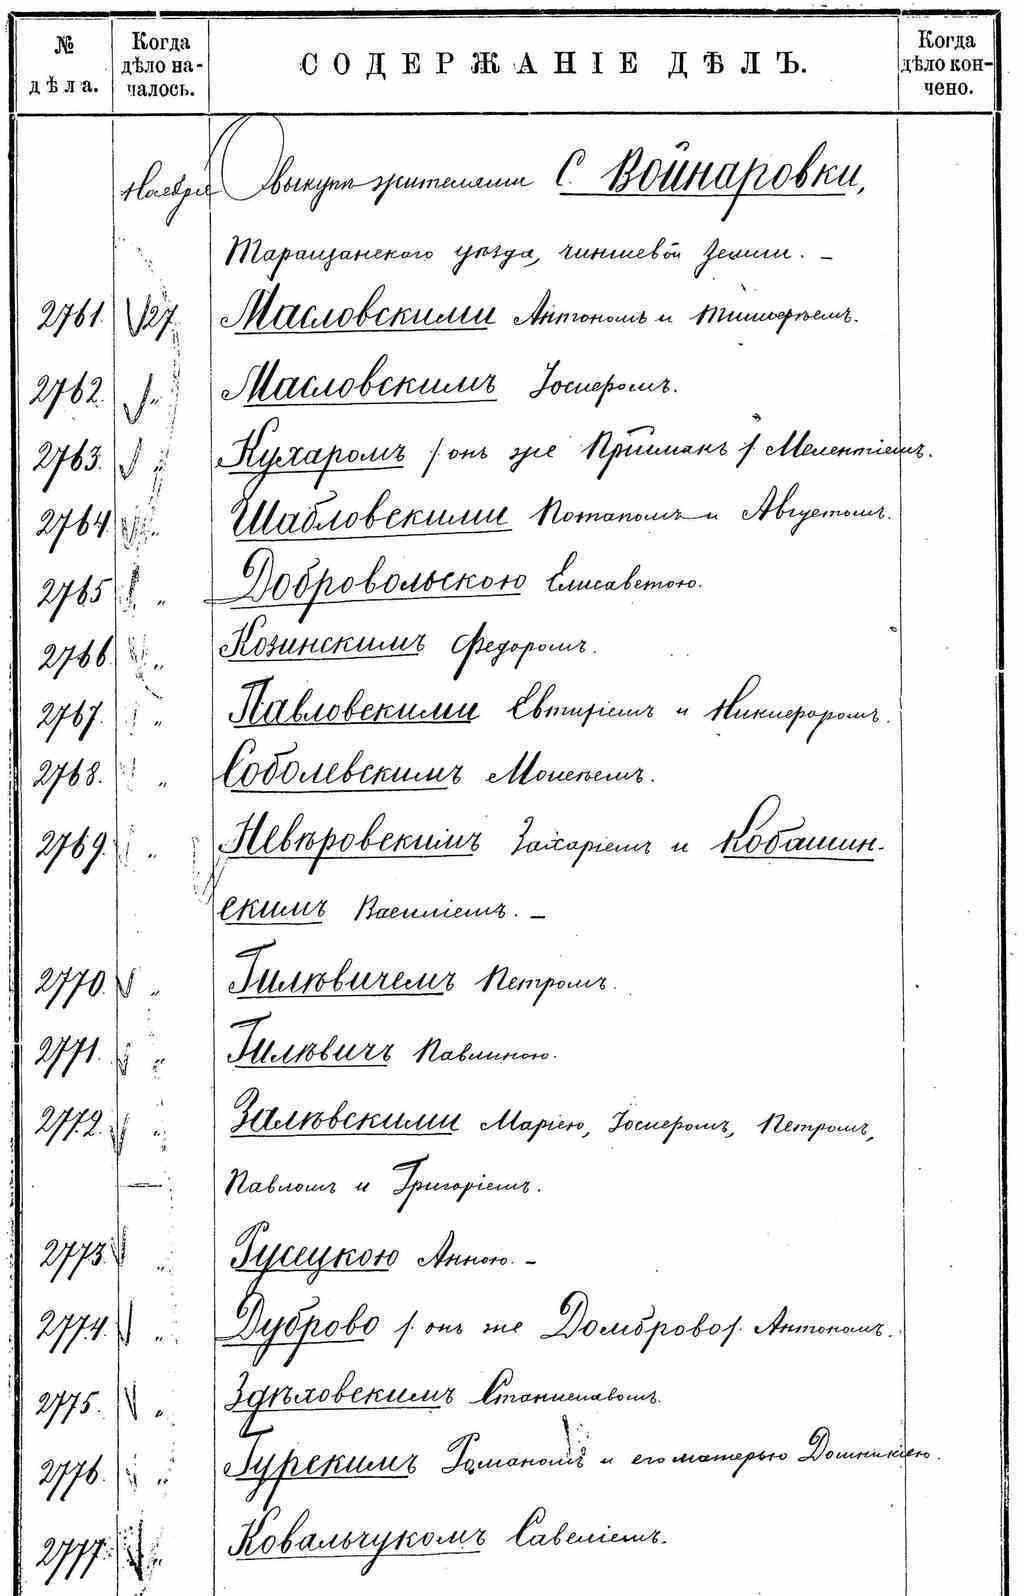 № дѣла. Когда дѣло началось. СОДЕРЖАНІЕ ДѢЛЪ. Когда дѣло кончено.
Ноября О выкупѣ жителями С. Войнаровки,
Таращанскаго уѣзда, чиншевой земли. —
2761. 27. Масловскими Антономъ и Тимофѣемъ.
2762. " Масловскимъ Іосифомъ.
2763. " Кухаромъ /онъ же Прійманъ/. Мелентіемъ.
2764. " Шабловскими Потапомъ и Августомъ.
2765 " Добровольскою Елисаветою.
2766. " Козинскимъ Федоромъ.
2767. " Павловскими Евтихіемъ и Никифоромъ.
2768. " Соболевскимъ Моисеемъ.
2769. " Невѣровскимъ Захаріемъ и Кобашин-
скимъ Василіемъ. —
2770. " Гилевичемъ Петромъ.
2771. " Гилевичъ Павлиною.
2772. " Залѣвскими Маріею, Іосифомъ, Петромъ,
Павломъ и Григоріемъ.
2773. " Русецкою Анною. —
2774. " Дуброво /. онъ же Домброво/. Антономъ.
2775. " Здѣховскимъ Станиславомъ.
2776. " Гурскимъ Романомъ и его матерью Домникіею.
2777. " Ковальчукомъ Савеліемъ.